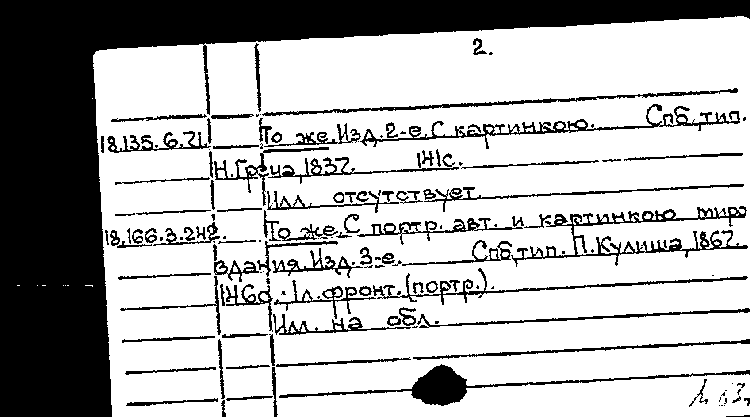 2.
18.135.6.71. То же. Изд. 2-е. С картинкою. Спб, тип.
Н. Греча, 1837. 141с.
Илл. отсутствует.
18.166.3.242. То же. С портр. авт. и картинкою миро
здания. Изд. 3-е. Спб, тип. П. Кулиша, 1867.
146с.; 1л. фронт. (портр.).
Илл. на обл.